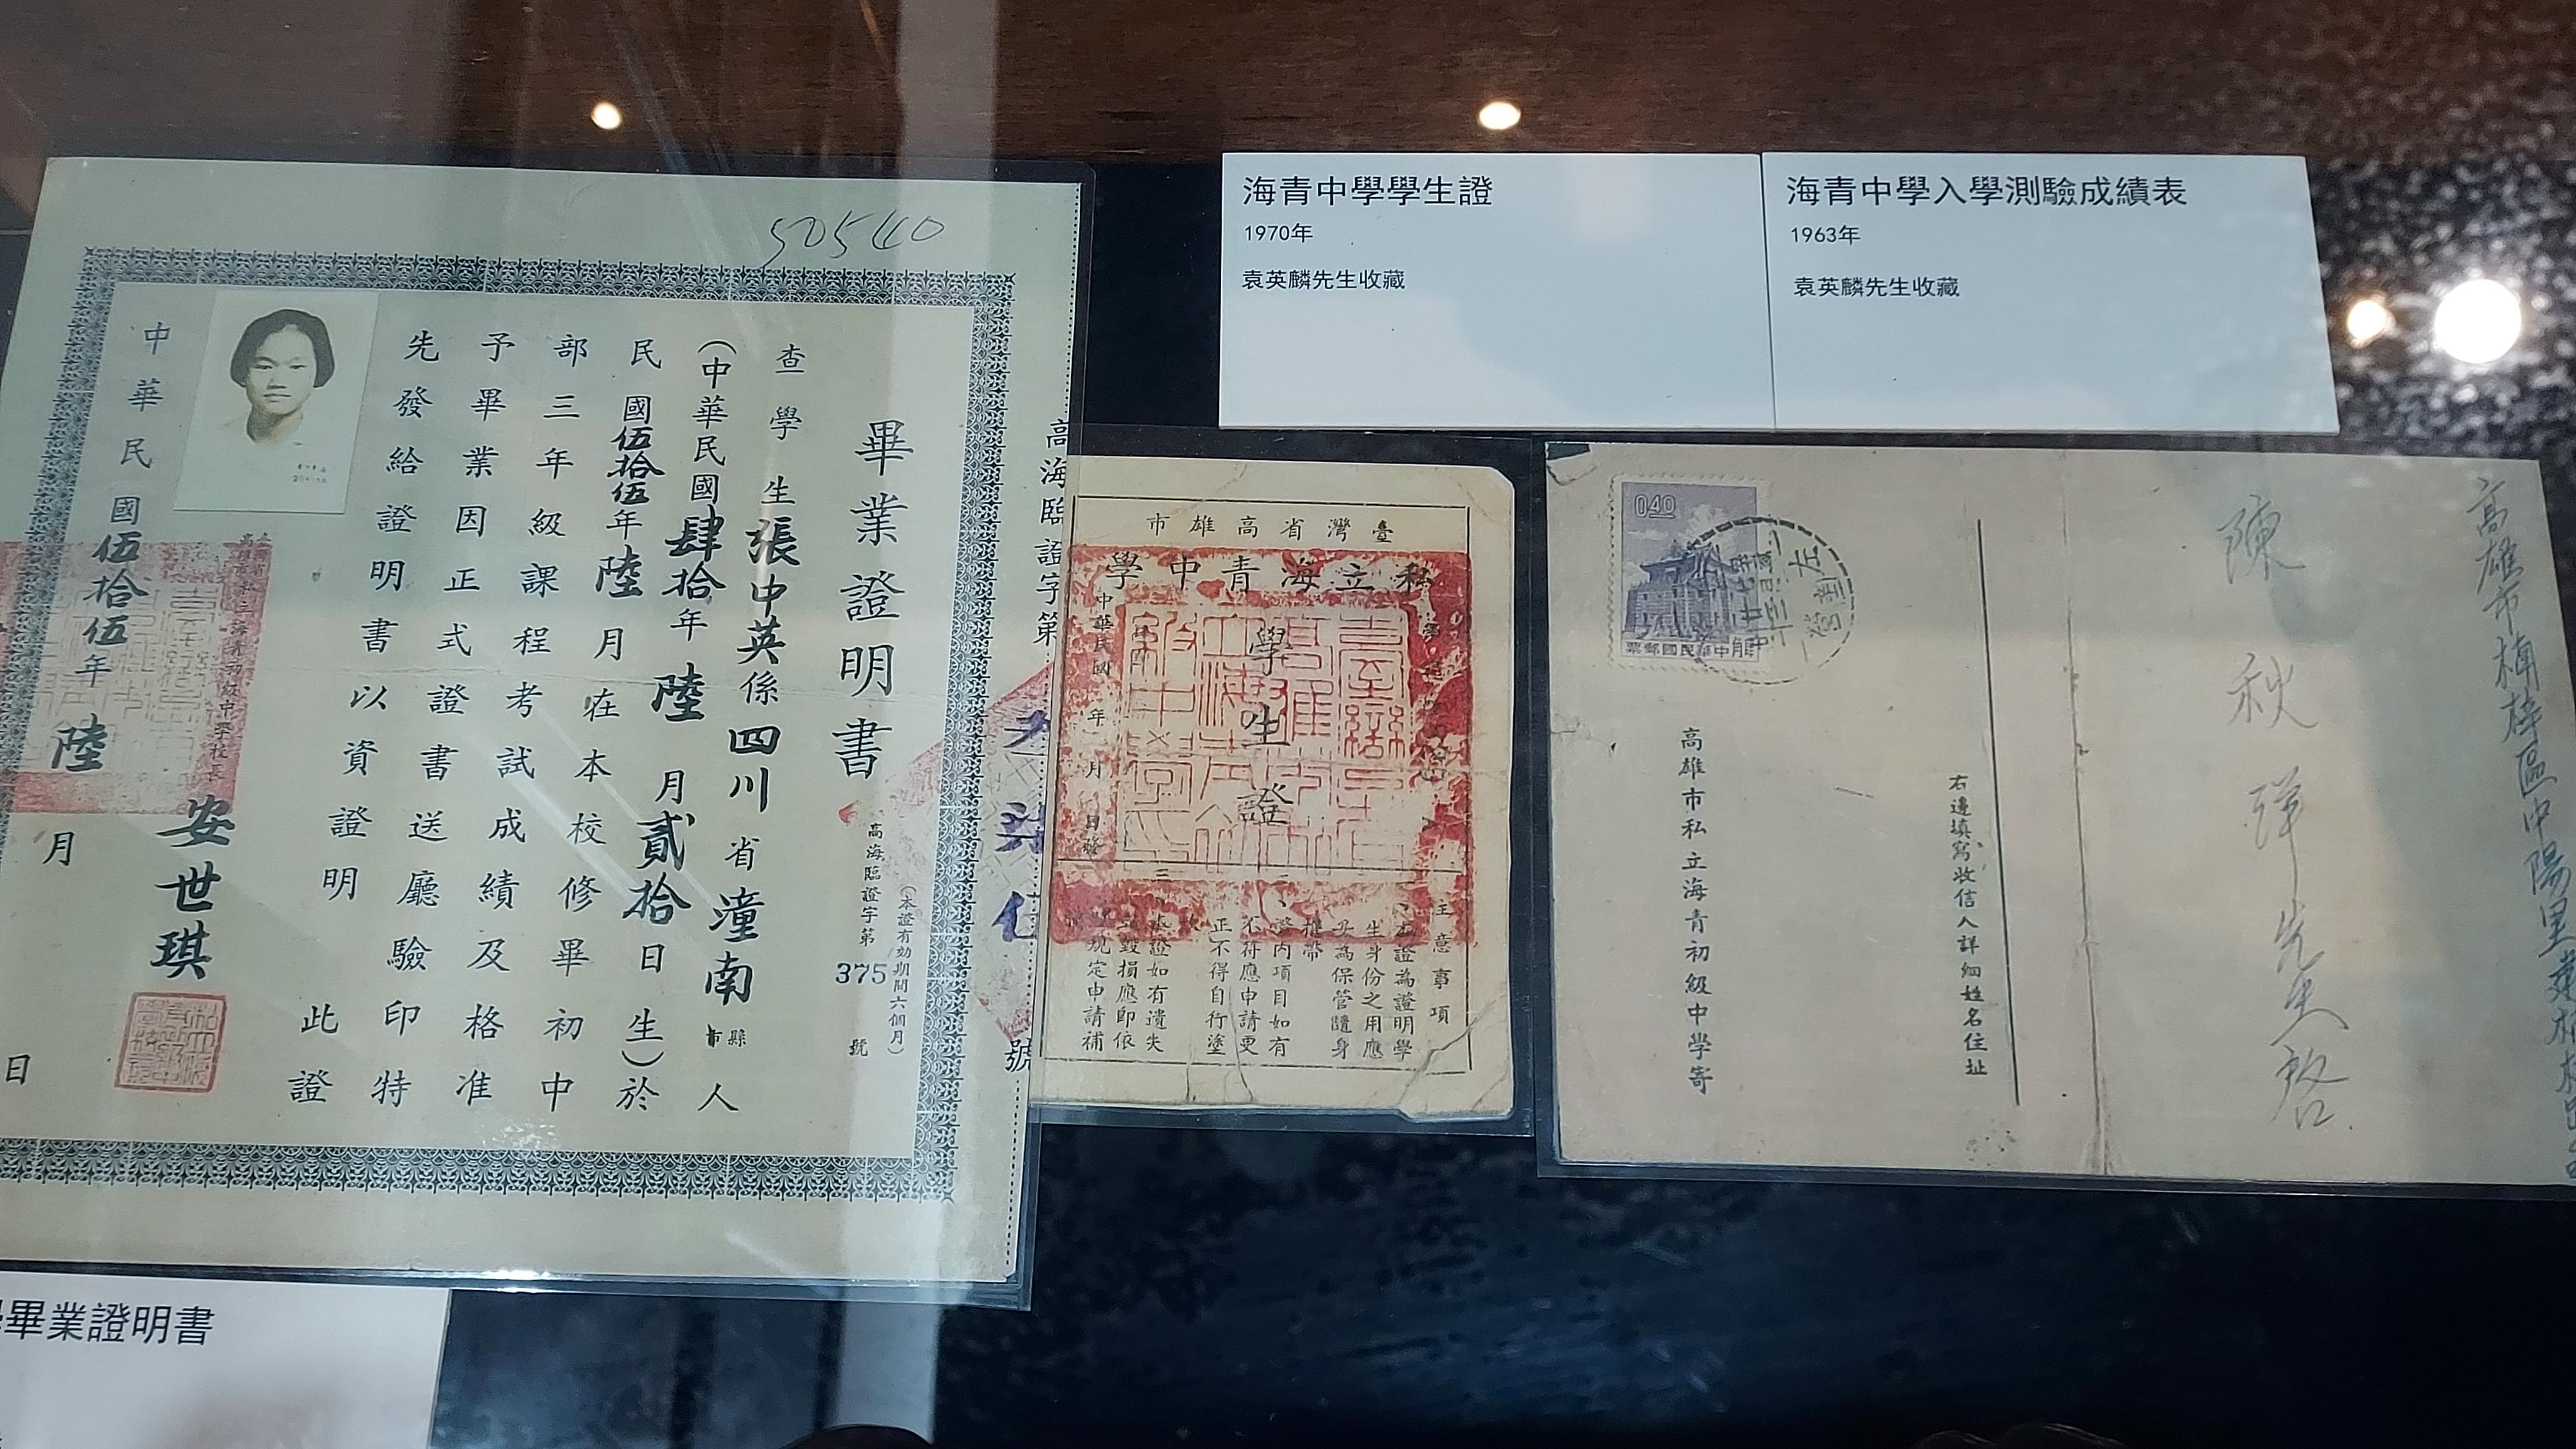 海青中學學生證
1970年
袁英麟先生收藏
海青中學入學測驗成績表
1963年
袁英麟先生收藏
50540
畢業證明書
高海臨證字第375號
(本證有効期間六個月)
查學生張中英係四川省潼南縣市人
(中華民國肆拾年陸月貳拾日生)於
民國伍拾伍年陸月在本校修畢初中
部三年級課程考試成績及格准
予畢業因正式證書送廳驗印特
先發給證明書以資證明 此證
校長
安世琪
中華民國伍拾伍年陸月 日
高海臨證字第 號
臺灣省高雄市
私立海青中學
學生證
中華民國 年 月 日發
注意事項
本證為證明學
生身份之用應
妥為保管隨身
攜帶
證內項目如有
不符應申請更
正不得自行塗
本證如有遺失
毀損應即依
規定申請補
0.40
中華民國郵票
高雄市私立海青初級中學寄
右邊填寫收信人詳細姓名住址
陳秋 先生啓
高雄市楠梓區中陽里
畢業證明書